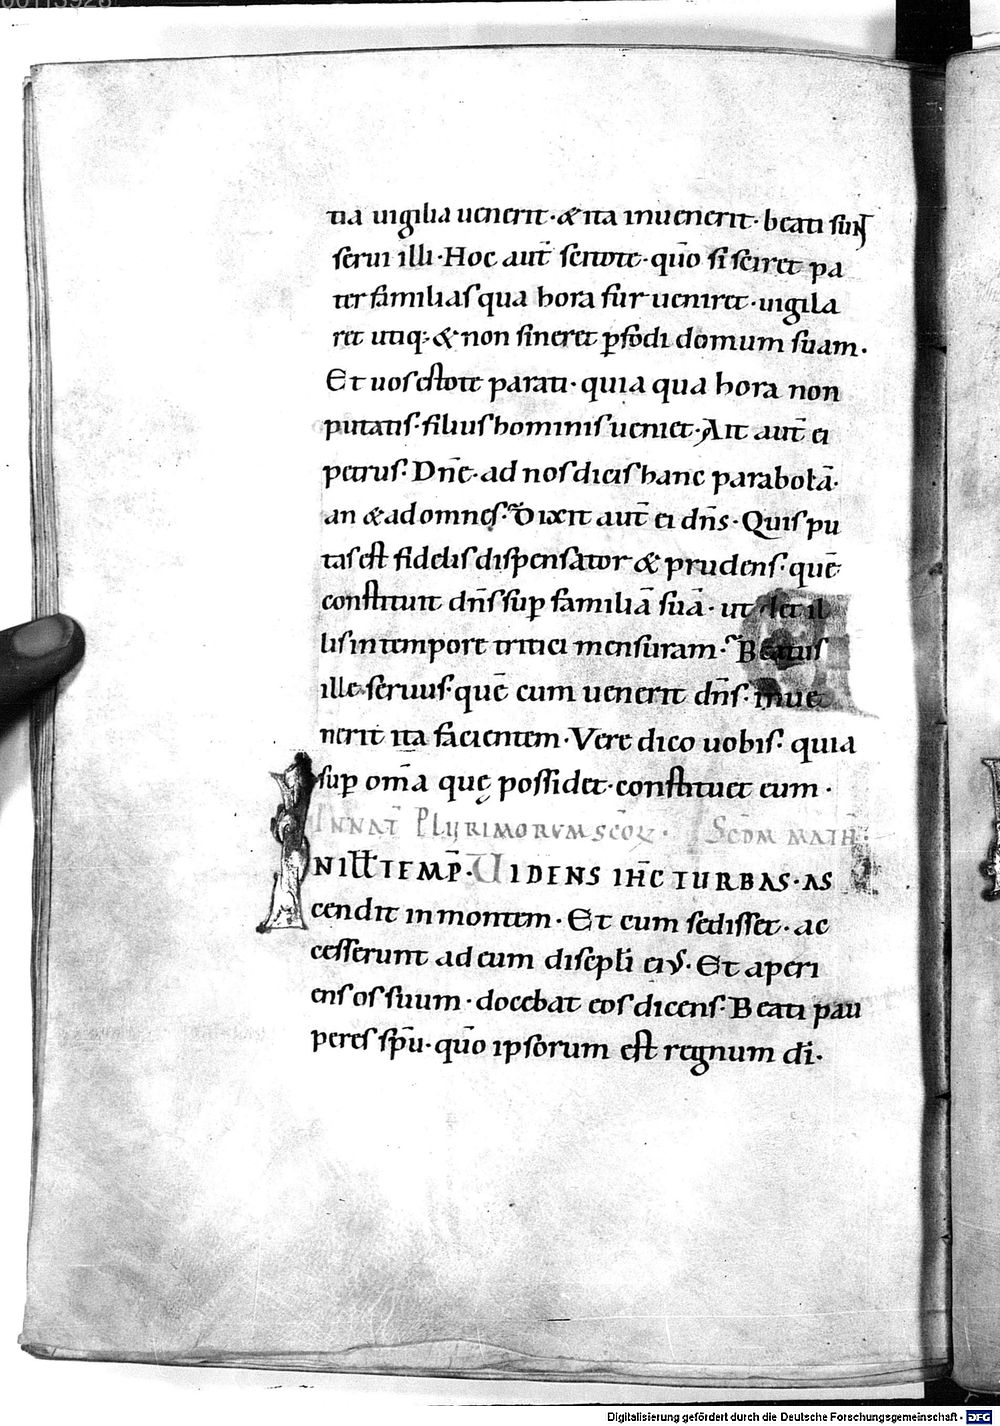 tia uigilia uenerit·& ita inuenerit· beati sunt
serui illi· Hoc aut̄ scitote· quō si sciret pa
ter familias qua hora fur ueniret· uigila
ret utiq;· & non sineret p̲fodi domum suam·
Et uos estote parati· quia qua hora non
putatis· filius hominis ueniet· Ait aut̄ ei
petrus· Dn̄e· ad nos dicis hanc parabolā·
an & ad omnes· Dixit aut̄ ei dn̄s· Quis pu
tas est fidelis dispensator & prudens· quē
constituit dn̄s sup̲ familiā suā· ut det il
lis in tempore tritici mensuram· Beatus
ille seruus· quē cum uenerit dn̄s· inue
nerit ita facientem· Vere dico uobis· quia
sup̲ om̄a quę possidet· constituet eum·
IN NAT̄ PLVRIMORVM SCŌꝜ· SCDM MATH̄·
IN ILL̄ TEMP̄· VIDENS IH̄C TURBAS· AS
cendit in montem· Et cum sedisset· ac
cesserunt ad eum discpl̄i eiꝰ· Et aperi
ens os suum· docebat eos dicens· Beati pau
peres sp̄u· quō ipsorum est regnum dī·
Digitalisierung gefördert durch die Deutsche Forschungsgemeinschaft - DFG